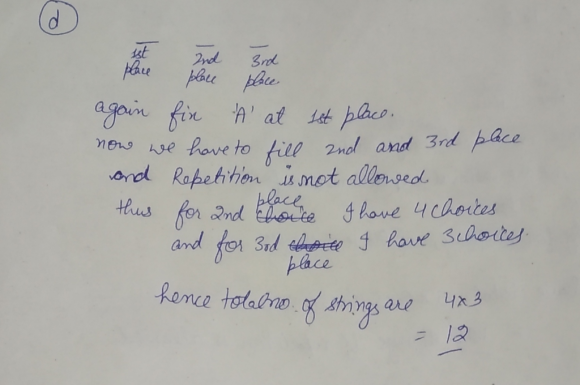 d
1st place 2nd place 3rd place
again fix 'A' at 1st place.
now we have to fill 2nd and 3rd place
and Repetition is not allowed
thus for 2nd place I have 4 choices
and for 3rd place I have 3 choices.
hence total no. of strings are 4x3
= 12